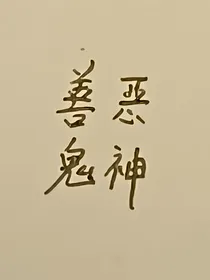 善恶
鬼神